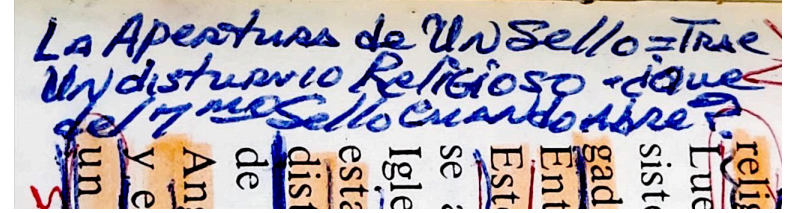 La Apertura de Un Sello = Trae
Un disturvio Religioso - ¿que
del 7mo Sello cuando Abre?
relig
Lue
siste
gad
Ent
Este
se a
Igle
esta
dist
de
Ang
y e
un